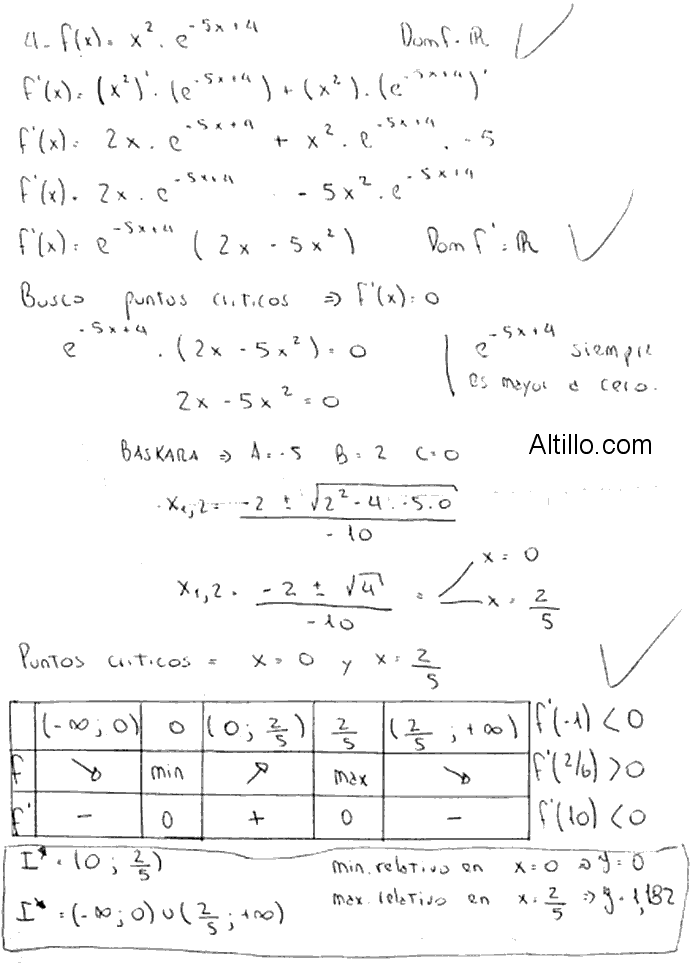 4- f(x) = x² . e^(-5x+4) Dom f = ℝ
f'(x) = (x²)' . (e^(-5x+4)) + (x²) . (e^(-5x+4))'
f'(x) = 2x . e^(-5x+4) + x² . e^(-5x+4) . -5
f'(x) = 2x . e^(-5x+4) - 5x² . e^(-5x+4)
f'(x) = e^(-5x+4) (2x - 5x²) Dom f' = ℝ
Busco puntos criticos ⇒ f'(x) = 0
e^(-5x+4) . (2x - 5x²) = 0 | e^(-5x+4) siempre
2x - 5x² = 0 | es mayor a cero.
Altillo.com
BASKARA ⇒ A = -5 B = 2 C = 0
x₁,₂ = (-2 ± √(2² - 4 . -5 . 0)) / -10
x₁,₂ = (-2 ± √4) / -10 = x = 0
x = 2/5
Puntos criticos = x = 0 y x = 2/5
(-∞; 0) 0 (0; 2/5) 2/5 (2/5; +∞) f'(-1) < 0
f ↘ min ↗ max ↘ f'(2/6) > 0
f' - 0 + 0 - f'(10) < 0
I↗ = (0; 2/5) min. relativo en x = 0 ⇒ y = 0
I↘ = (-∞; 0) ∪ (2/5; +∞) max. relativo en x = 2/5 ⇒ y = 1,182